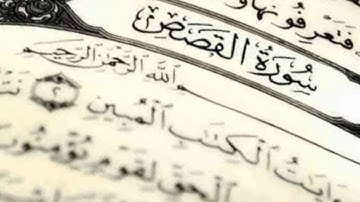 فَتَعْرِفُونَهَا وَ
سُورَةُ ٱلْقَصَصِ
ٱللَّهِ ٱلرَّحْمَٰنِ ٱلرَّحِيمِ
ءَايَٰتُ ٱلْكِتَٰبِ ٱلْمُبِينِ ٢ نَتْ
ٱلْحَقِّ لِقَوْمٍ يُؤْمِنُونَ